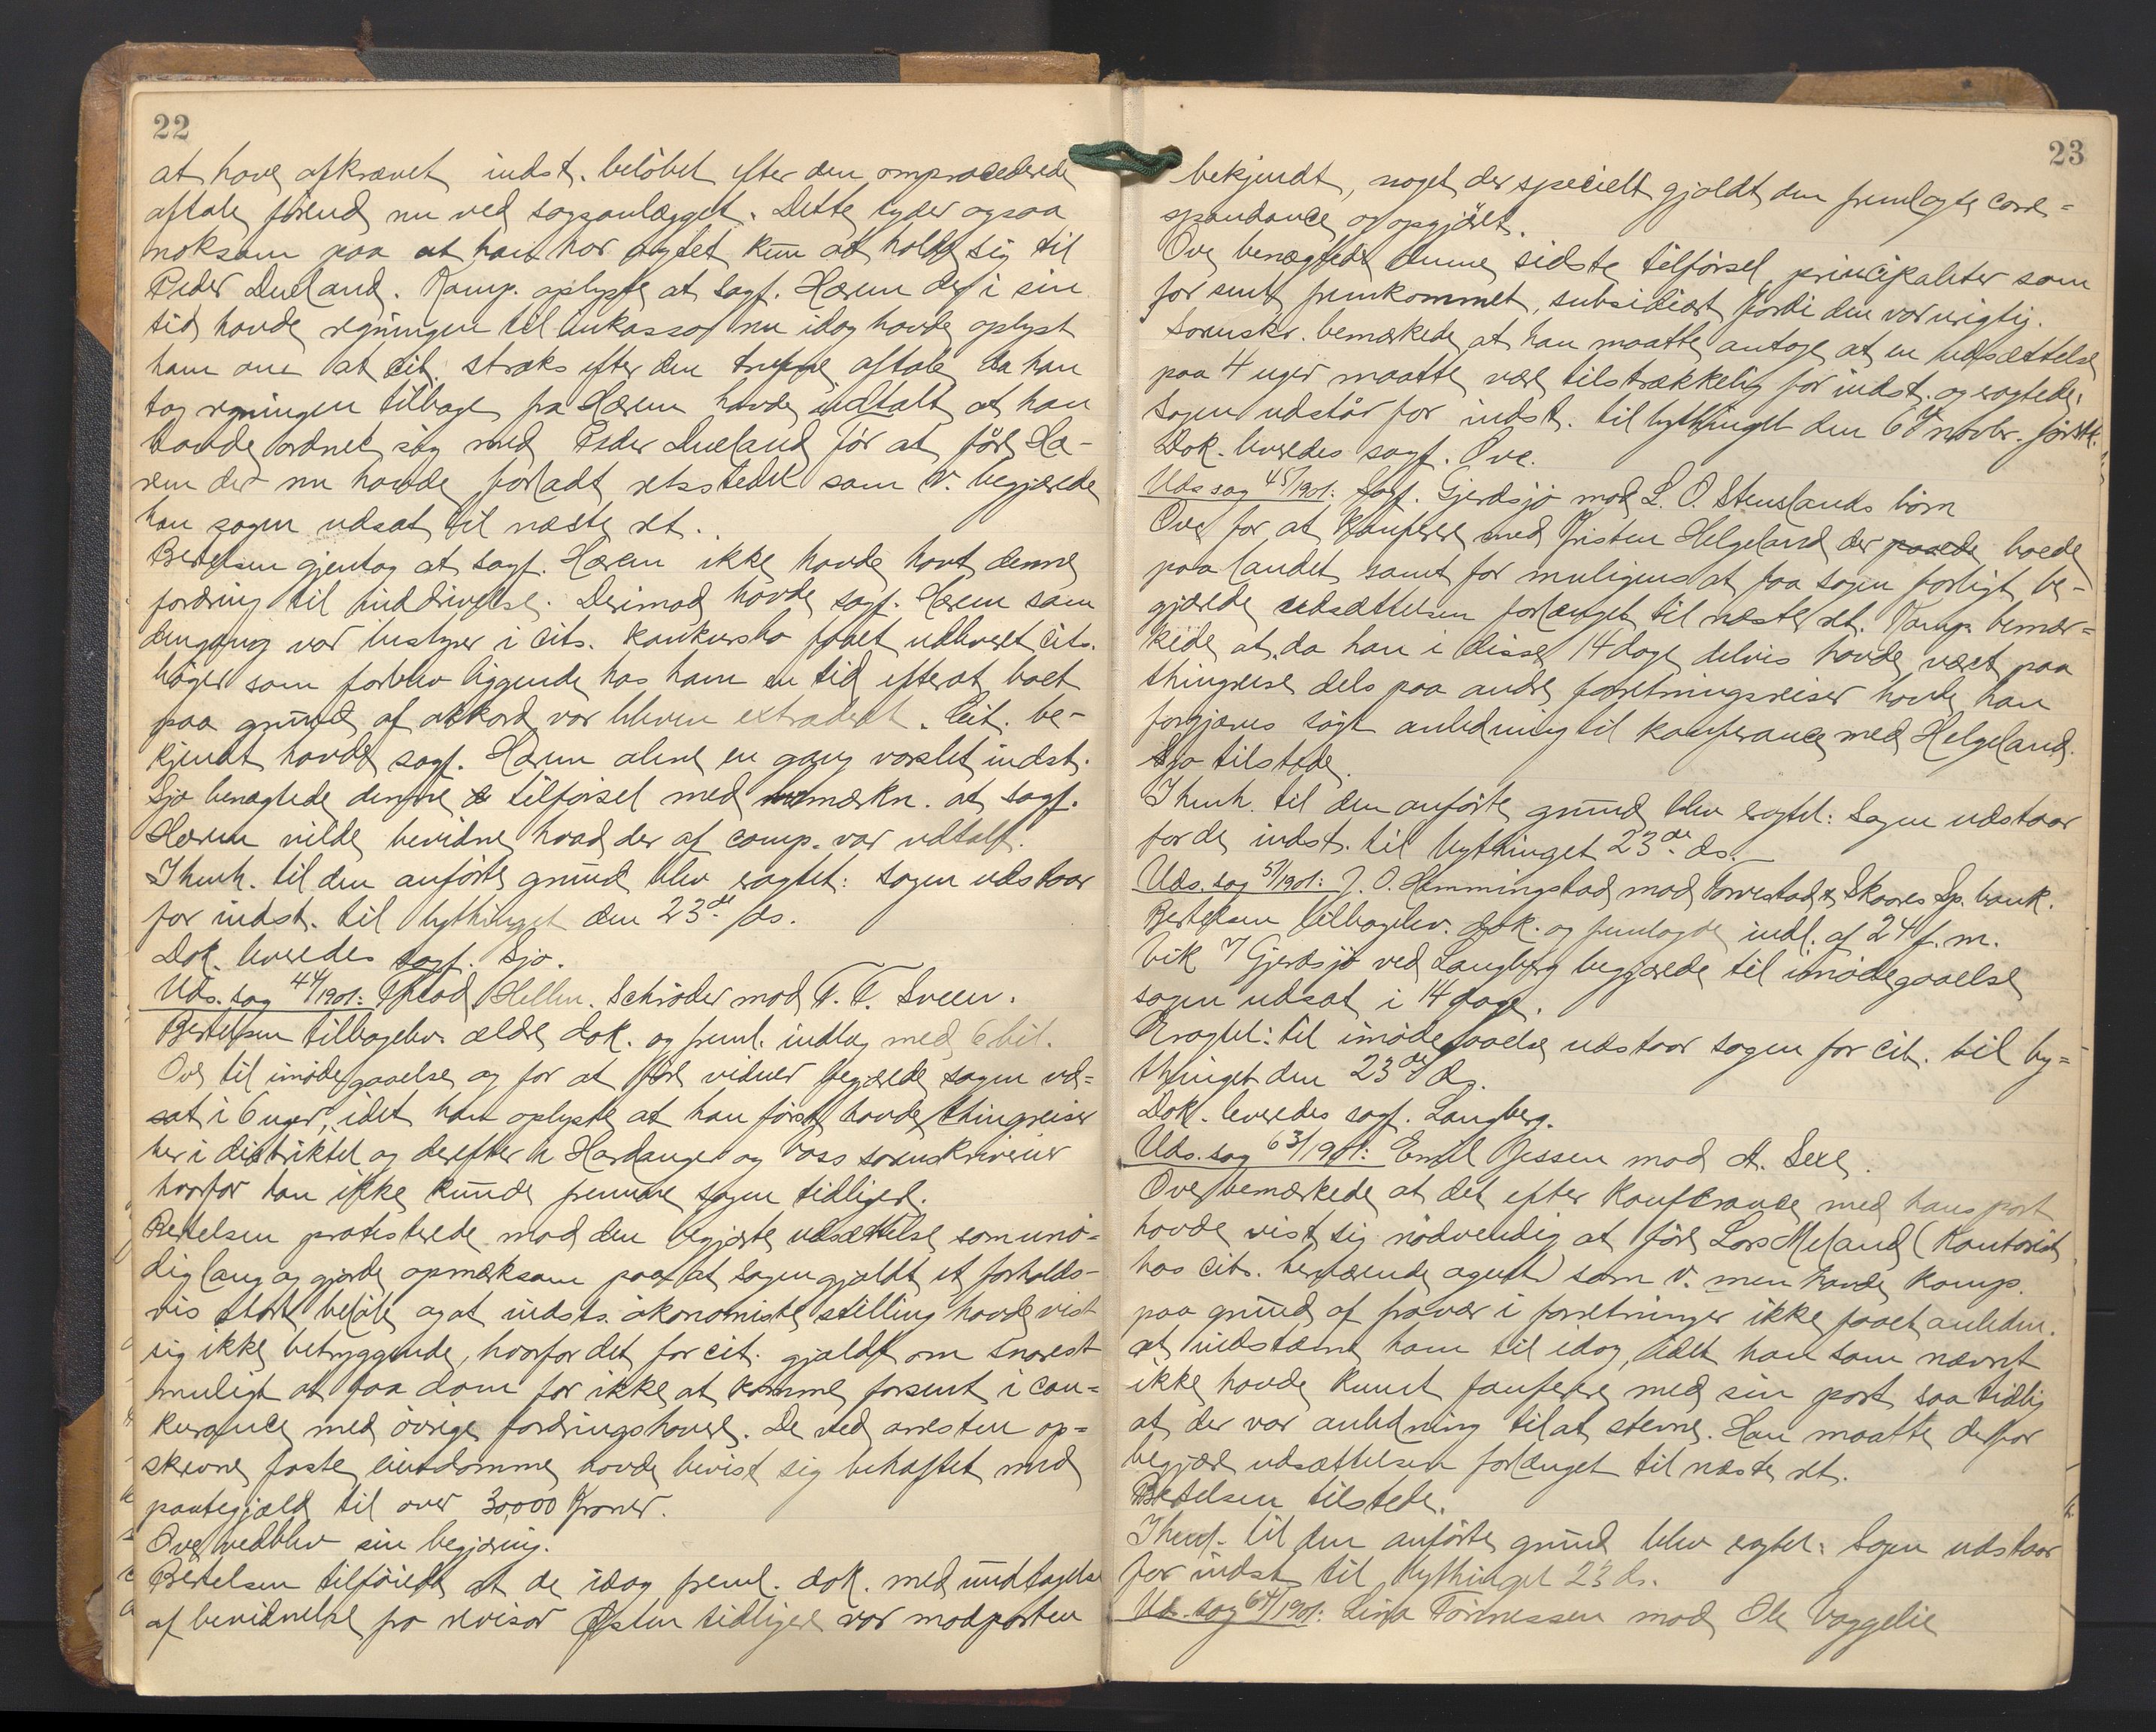 22
at have afkrævet indst. beløbet efter den omprocederede
aftale førend nu ved sagsanlægget. Dette tyder ogsaa
noksom paa at han har agtet kun at holde sig til
Peder Dueland. Komp. oplyste at sagf. Hærem der i sin
tid havde regningen til inkasso nu idag havde oplyst
ham om at cit. straks efter den trufne aftale da han
tog regningen tilbage fra Hærem havde udtalt at han
havde ordnet sig med Peder Dueland for at føre Hæ-
rem der nu havde forladt retsstedet som v. begjærede
han sagen udsat til næste ret.
Bertelsen gjentog at sagf. Hærem ikke havde havt denne
fordring til inddrivelse. Derimod havde sagf. Hærem som
dengang var bestyrer i cits. konkursbo faaet udleveret cits.
bøger som forblev liggende hos ham en tid efterat boet
paa grund af akkord var bleven extraderet. Cit. be-
kjendt havde sagf. Hærem alene en gang varslet indst.
Sjo benægtede denne tilførsel med bemærkn. at sagf.
Hærem vilde bevidne hvad der af comp. var udtalt.
I henh. til den anførte grund blev eragtet: Sagen udstaar
for indst. til bythinget den 23de ds.
Dok. leveredes sagf. Sjo.
Uds. sag 44/1901: Theod Hellm. Schrøder mod T. T. Sveen.
Bertelsen tilbagelev. ældre dok. og freml. indlæg med 6 bil.
Ove til imødegaaelse og for at føre vidner begjærede sagen ud=
sat i 6 uger, idet han oplyste at han først havde thingreiser
her i distriktet og derefter i Hardanger og Voss sorenskriverier
hvorfor han ikke kunde fremme sagen tidligere.
Bertelsen protesterede mod den begjærte udsættelse som unø-
dig lang og gjorde opmærksom paa at sagen gjaldt et forholds-
vis stort beløb og at indsts. økonomiske stilling havde vist
sig ikke betryggende, hvorfor det for cit. gjaldt om snarest
muligt at faa dom for ikke at komme forsent i con=
kurance med øvrige fordringshavere. De ved arresten op=
skrevne faste eiendomme havde bevist sig behæftet med
pantegjæld til over 30,000 Kroner.
Ove vedblev sin begjæring.
Bertelsen tilføiede at de idag freml. dok. med undtagelse
af bevidnelse fra revisor Østen tidligere var modparten
23
bekjendt, noget der specielt gjaldt den fremlagte corre=
spondance og opgjøret.
Ove benægtede denne sidste tilførsel, principaliter som
for sent fremkommet, subsidiært fordi den var urigtig.
Sorenskr. bemærkede at han maatte antage at en udsættelse
paa 4 uger maatte være tilstrækkelig for indst. og eragtede:
Sagen udstår for indst. til bythinget den 6te novbr. førstk.
Dok. leveredes sagf. Ove.
Uds sag 45/1901: Sagf. Gjerdsjø mod L. O. Stenslands børn
Ove for at konferere med Kristen Helgeland der boede
paa landet samt for muligens at faa sagen forligt be-
gjærede udsættelsen forlænget til næste ret. Komp. bemær=
kede at da han i disse 14 dage delvis havde været paa
thingreise dels paa andre forretningsreiser havde han
forgjæves søgt anledning til konferance med Helgeland.
Sjo tilstede.
I henh. til den anførte grund blev eragtet: Sagen udstaar
for de indst. til bythinget 23de ds.
Uds. sag 57/1901: J. O. Hemmingstad mod Torvestad & Skaares Sp. bank.
Bertelsen tilbagelev. dok. og fremlagde indl. af 24 f. m.
Vik & Gjerdsjø ved Langberg begjærede til imødegaaelse
sagen udsat i 14 dage.
Eragtet: til imødegaaelse udstaar sagen for cit. til by=
thinget den 23de ds.
Dok. leveredes sagf. Langberg.
Uds. sag 63/1901: Emil Jessen mod A. Sexe.
Ove bemærkede at det efter konferance med hans part
havde vist sig nødvendig at føre Lars Meland (kontorist
hos cits. herværende agent) som v. men havde komp.
paa grund af fravær i forretninger ikke faaet anledn.
at indstævne ham til idag, idet han som nævnt
ikke havde kunnet konferere med sin part saa tidlig
at der var anledning til at stevne. Han maatte derfor
begjære udsættelsen forlænget til næste ret.
Bertelsen tilstede.
I henh. til den anførte grund blev eragtet: Sagen udstaar
for indst. til bythinget 23 ds.
Uds. sag 64/1901: Lina Tønnessen mod Ole Vaggelie